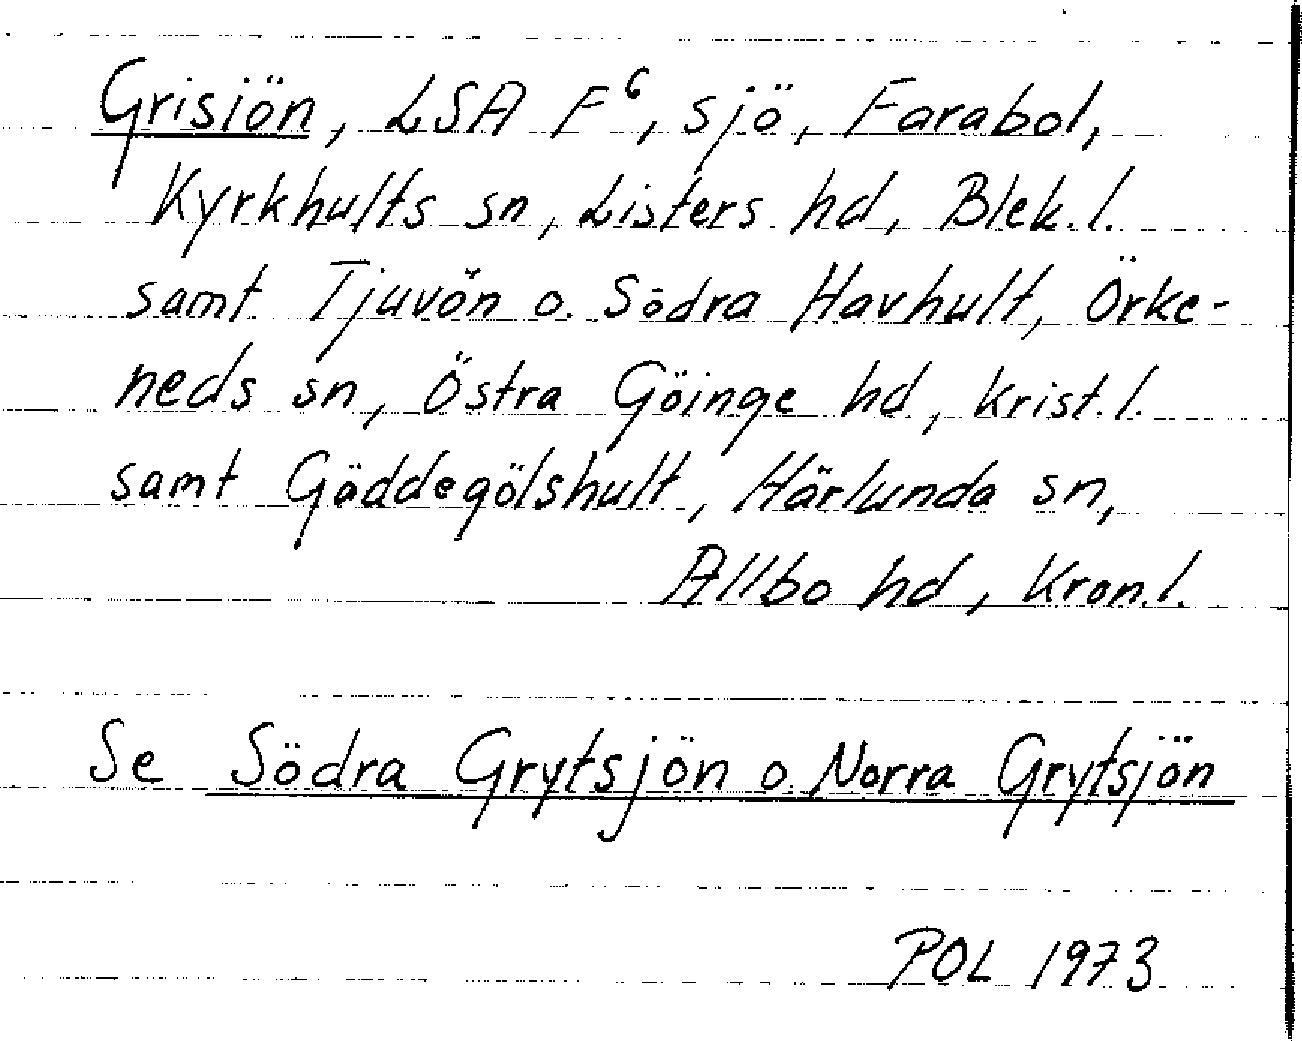 Grisiön, LSA F⁶, sjö, Farabol,
Kyrkhults sn, Listers hd, Blek.l.
samt Tjuvön o. Södra Havhult, Örke-
neds sn, Östra Göinge hd, Krist.l.
samt Gäddegölshult, Härlunda sn,
Allbo hd, Kron.l.
Se Södra Grytsjön o. Norra Grytsjön
POL 1973